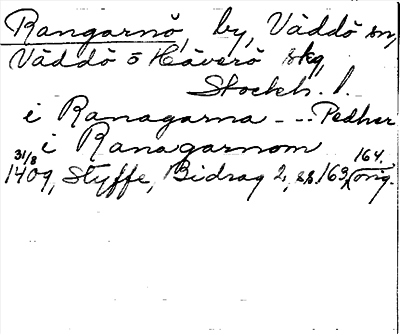 Rangarnö, by, Väddö sn,
Väddö o Häverö skg,
Stockh. l.
i Ranagarna - .. Pedher
i Ranagarnom
31/8 1409, Styffe, Bidrag 2, ss. 163, 164. orig.